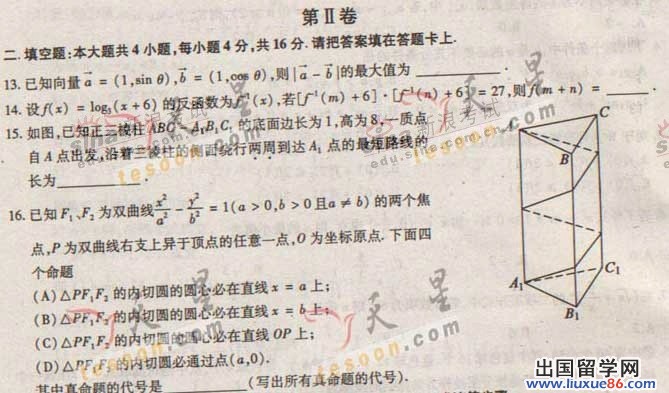 第Ⅱ卷
二.填空题:本大题共4小题,每小题4分,共16分.请把答案填在答题卡上.
13.已知向量 a⃗ = (1,sin θ),b⃗ = (1,cos θ),则| a⃗ - b⃗ |的最大值为 ________.
14.设f(x) = log₃(x + 6) 的反函数为f⁻¹(x),若[f⁻¹(m) + 6]·[f⁻¹(n) + 6] = 27,则f(m + n) = ________.
15.如图,已知正三棱柱ABC - A₁B₁C₁ 的底面边长为1,高为8,一质点
自A点出发,沿着三棱柱的侧面绕行两周到达A₁点的最短路线的
长为________.
16.已知F₁、F₂ 为双曲线x²/a² - y²/b² = 1(a > 0,b > 0且a ≠ b) 的两个焦
点,P为双曲线右支上异于顶点的任意一点,O为坐标原点.下面四
个命题
(A)△PF₁F₂ 的内切圆的圆心必在直线 x = a上;
(B)△PF₁F₂ 的内切圆的圆心必在直线 x = b上;
(C)△PF₁F₂ 的内切圆的圆心必在直线 OP上;
(D)△PF₁F₂ 的内切圆必通过点(a,0).
其中真命题的代号是________(写出所有真命题的代号).
A
C
B
A₁
C₁
B₁
天星
tesoon.com
sina 新浪考试
edu.sina.com.cn
天星
tesoon.com
天星
tesoon.com
出国留学网
www.liuxue86.com